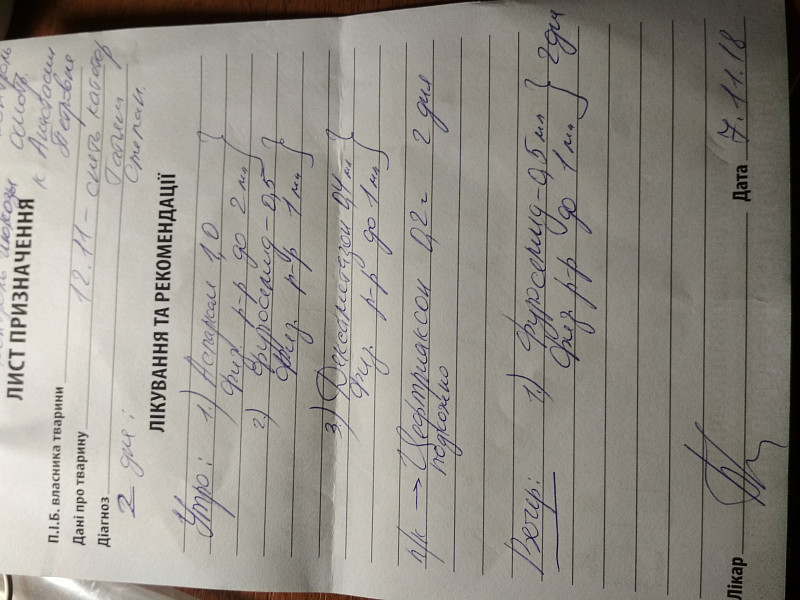 контроль глюкозы
осмотр
к Анастасии
ЛИСТ ПРИЗНАЧЕННЯ
П.І.Б. власника тварини
12.11 - снять катетер
Дані про тварину
Діагноз
2 дня:
ЛІКУВАННЯ ТА РЕКОМЕНДАЦІЇ
Утро: 1.) Аспаркам 1,0 }
физ. р-р до 2 мл
2) Фуросемид - 0,5 }
физ. р-р 1 мл
3) Дексаметазон 0,4 мл }
физ. р-р до 1 мл
п/к → Цефтриаксон 0,2 г 2 дня
подкожно
Вечер: 1) Фуросемид - 0,5 мл } 2 дня
физ р-р до 1 мл
Лікар Дата 7.11.18